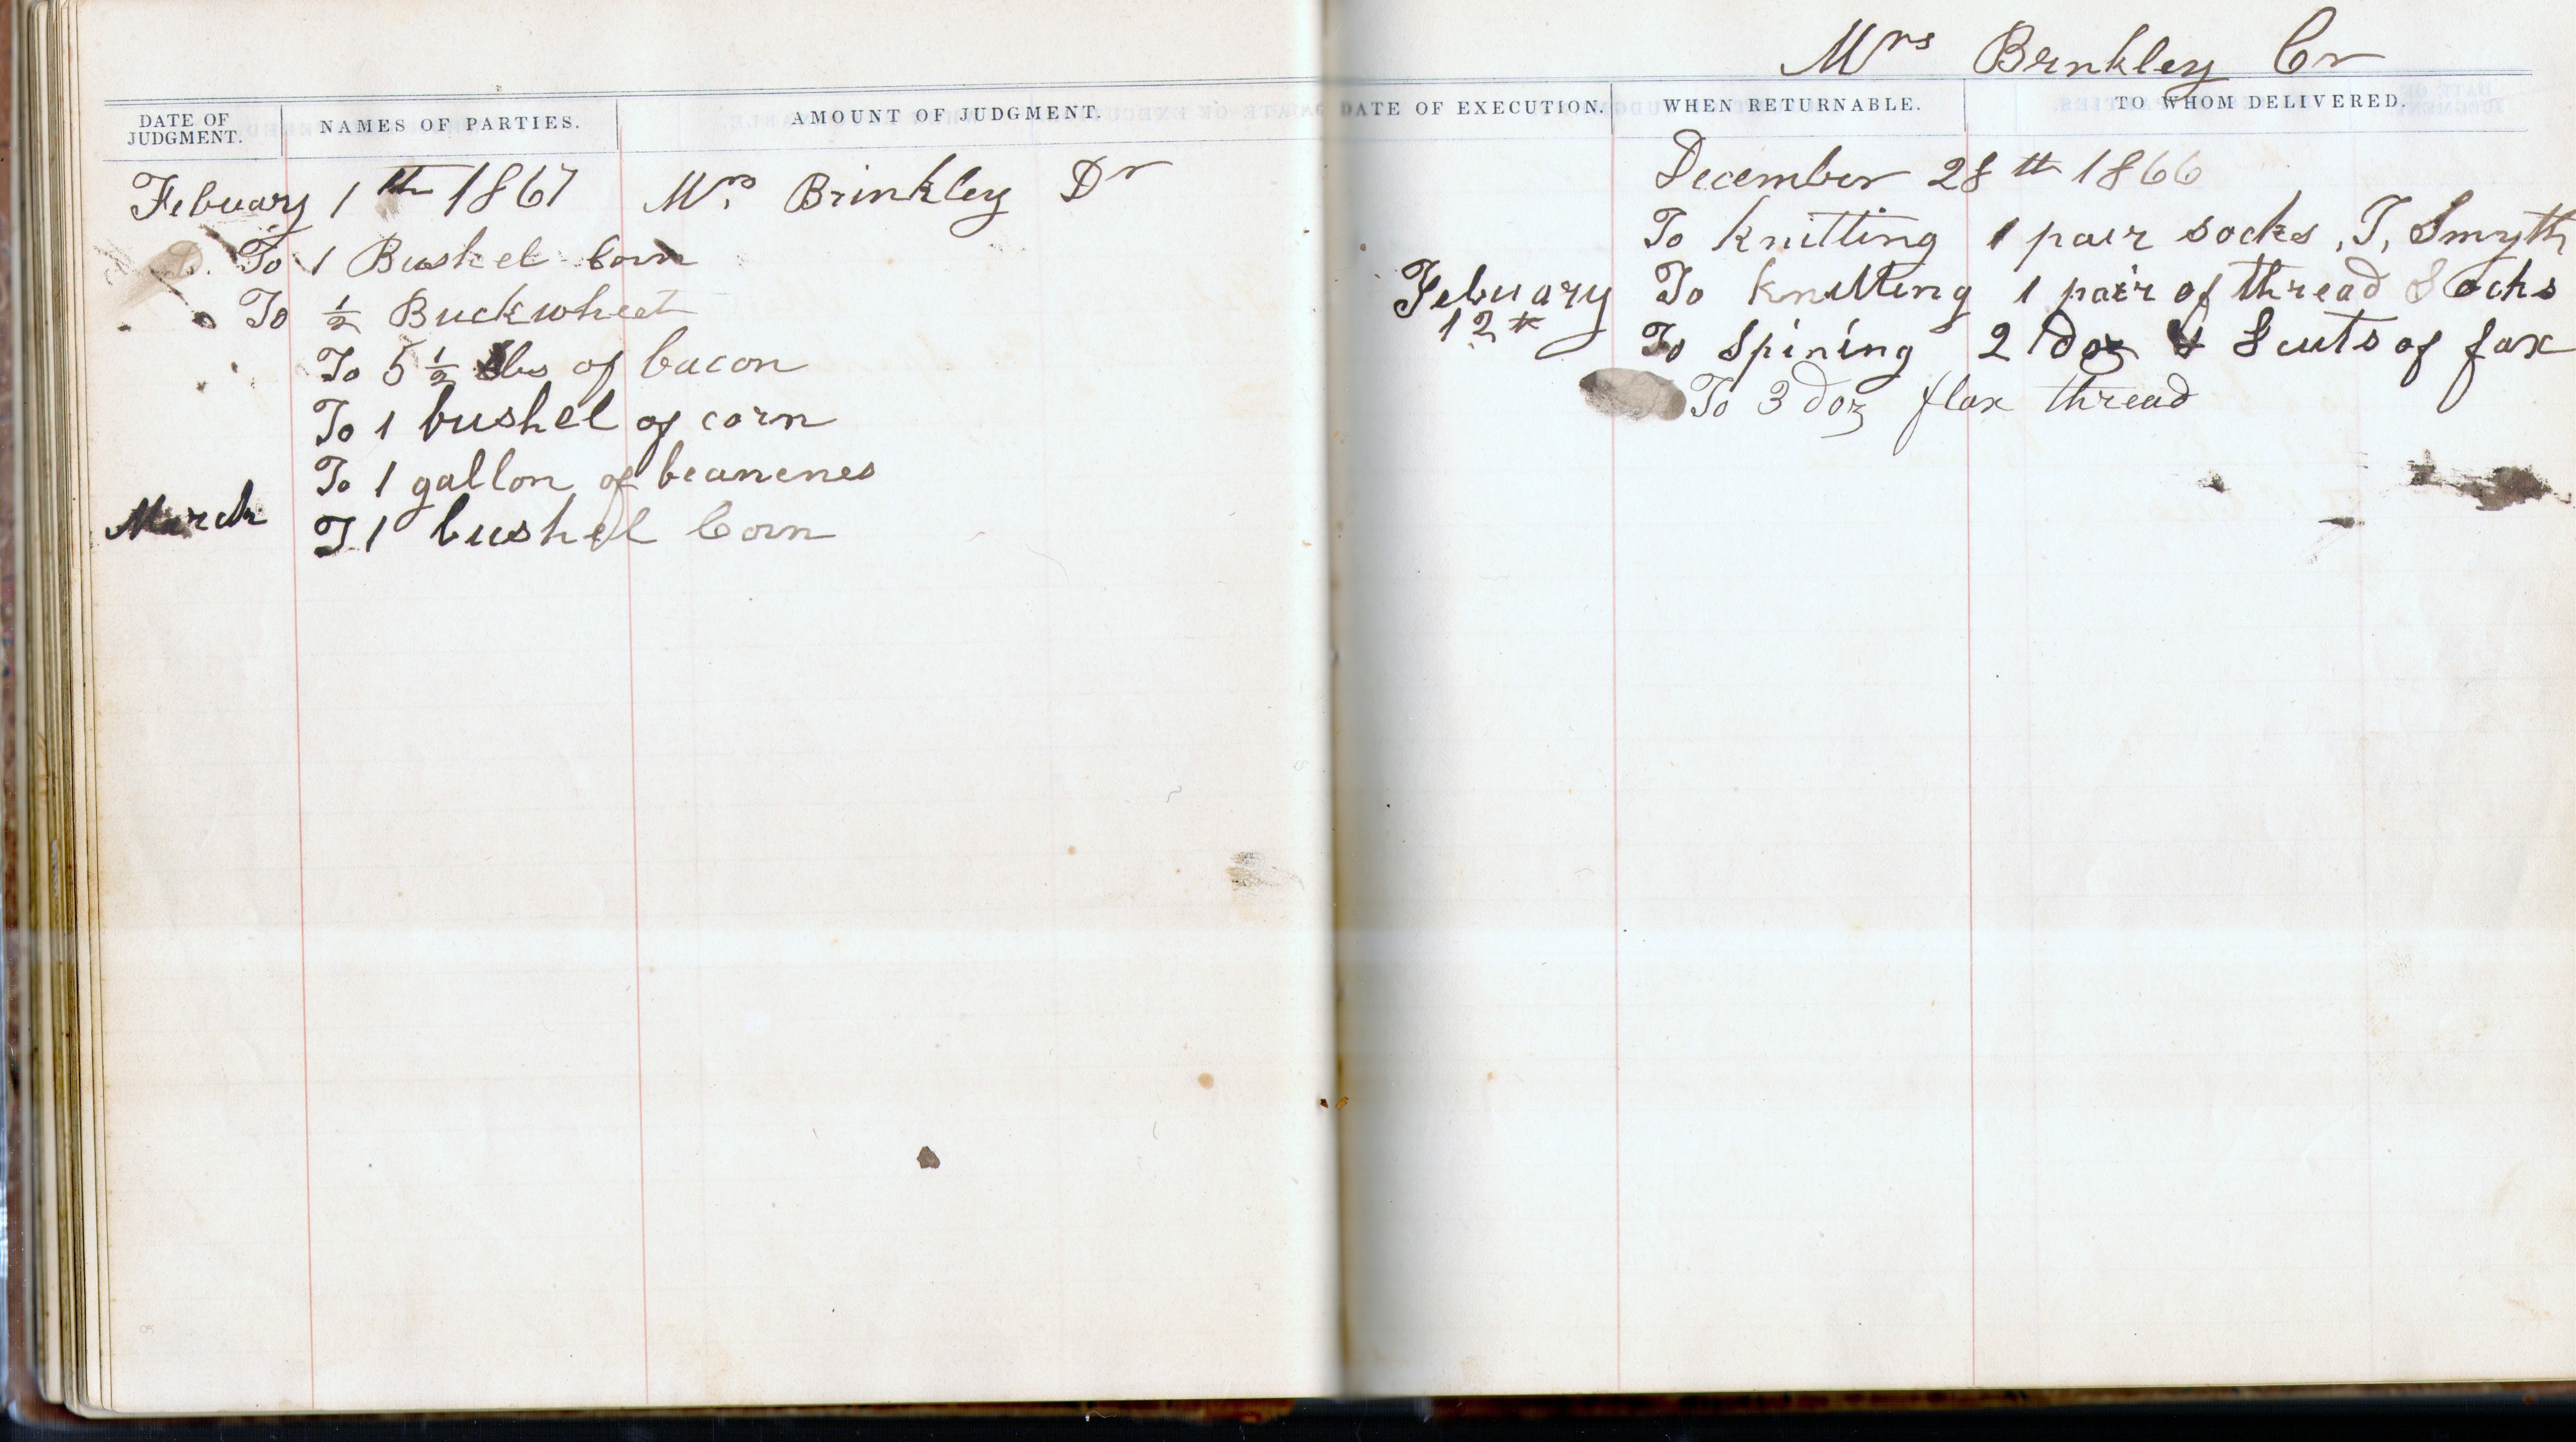 DATE OF JUDGMENT. NAMES OF PARTIES. AMOUNT OF JUDGMENT.
Febuary 1th 1867 Mrs Brinkley Dr
To 1 Bushel Corn
To ½ Buckwheat
To 5 ½ lbs of bacon
To 1 bushel of corn
To 1 gallon of beanenes
March T 1 bushel Corn
Mrs Brinkley Cr
DATE OF EXECUTION. WHEN RETURNABLE. TO WHOM DELIVERED.
December 28th 1866
To knitting 1 pair socks, T, Smyth
Febuary To knitting 1 pair of thread Socks
12th To Spining 2 doz & 8 cuts of fax
To 3 doz flax thread